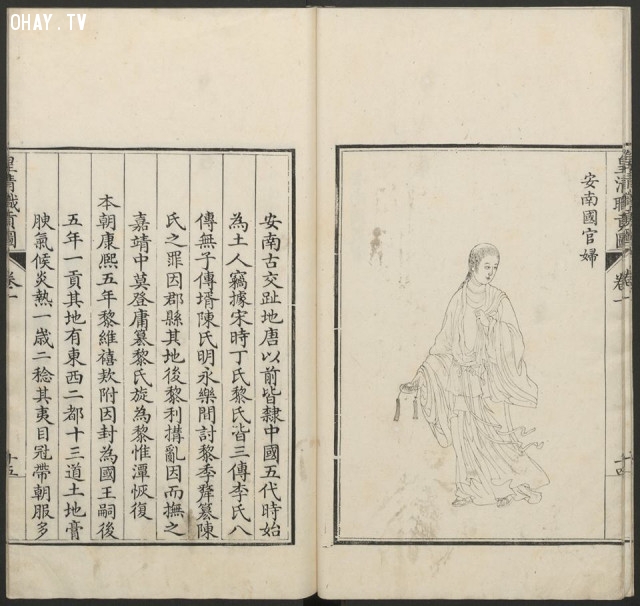 OHAY.TV
安南國官婦
皇清職貢圖
卷一
安南古交趾地唐以前皆隸中國五代時始
為土人竊據宋時丁氏黎氏皆三傳李氏八
傳無子傳壻陳氏明永樂間討黎季犛簒陳
氏之罪因郡縣其地後黎利搆亂因而撫之
嘉靖中莫登庸簒黎氏旋為黎惟潭恢復
本朝康熙五年黎維禧欵附因封為國王嗣後
五年一貢其地有東西二都十三道土地膏
腴氣候炎熱一歲二稔其夷目冠帶朝服多
皇清職貢圖
卷一
十五